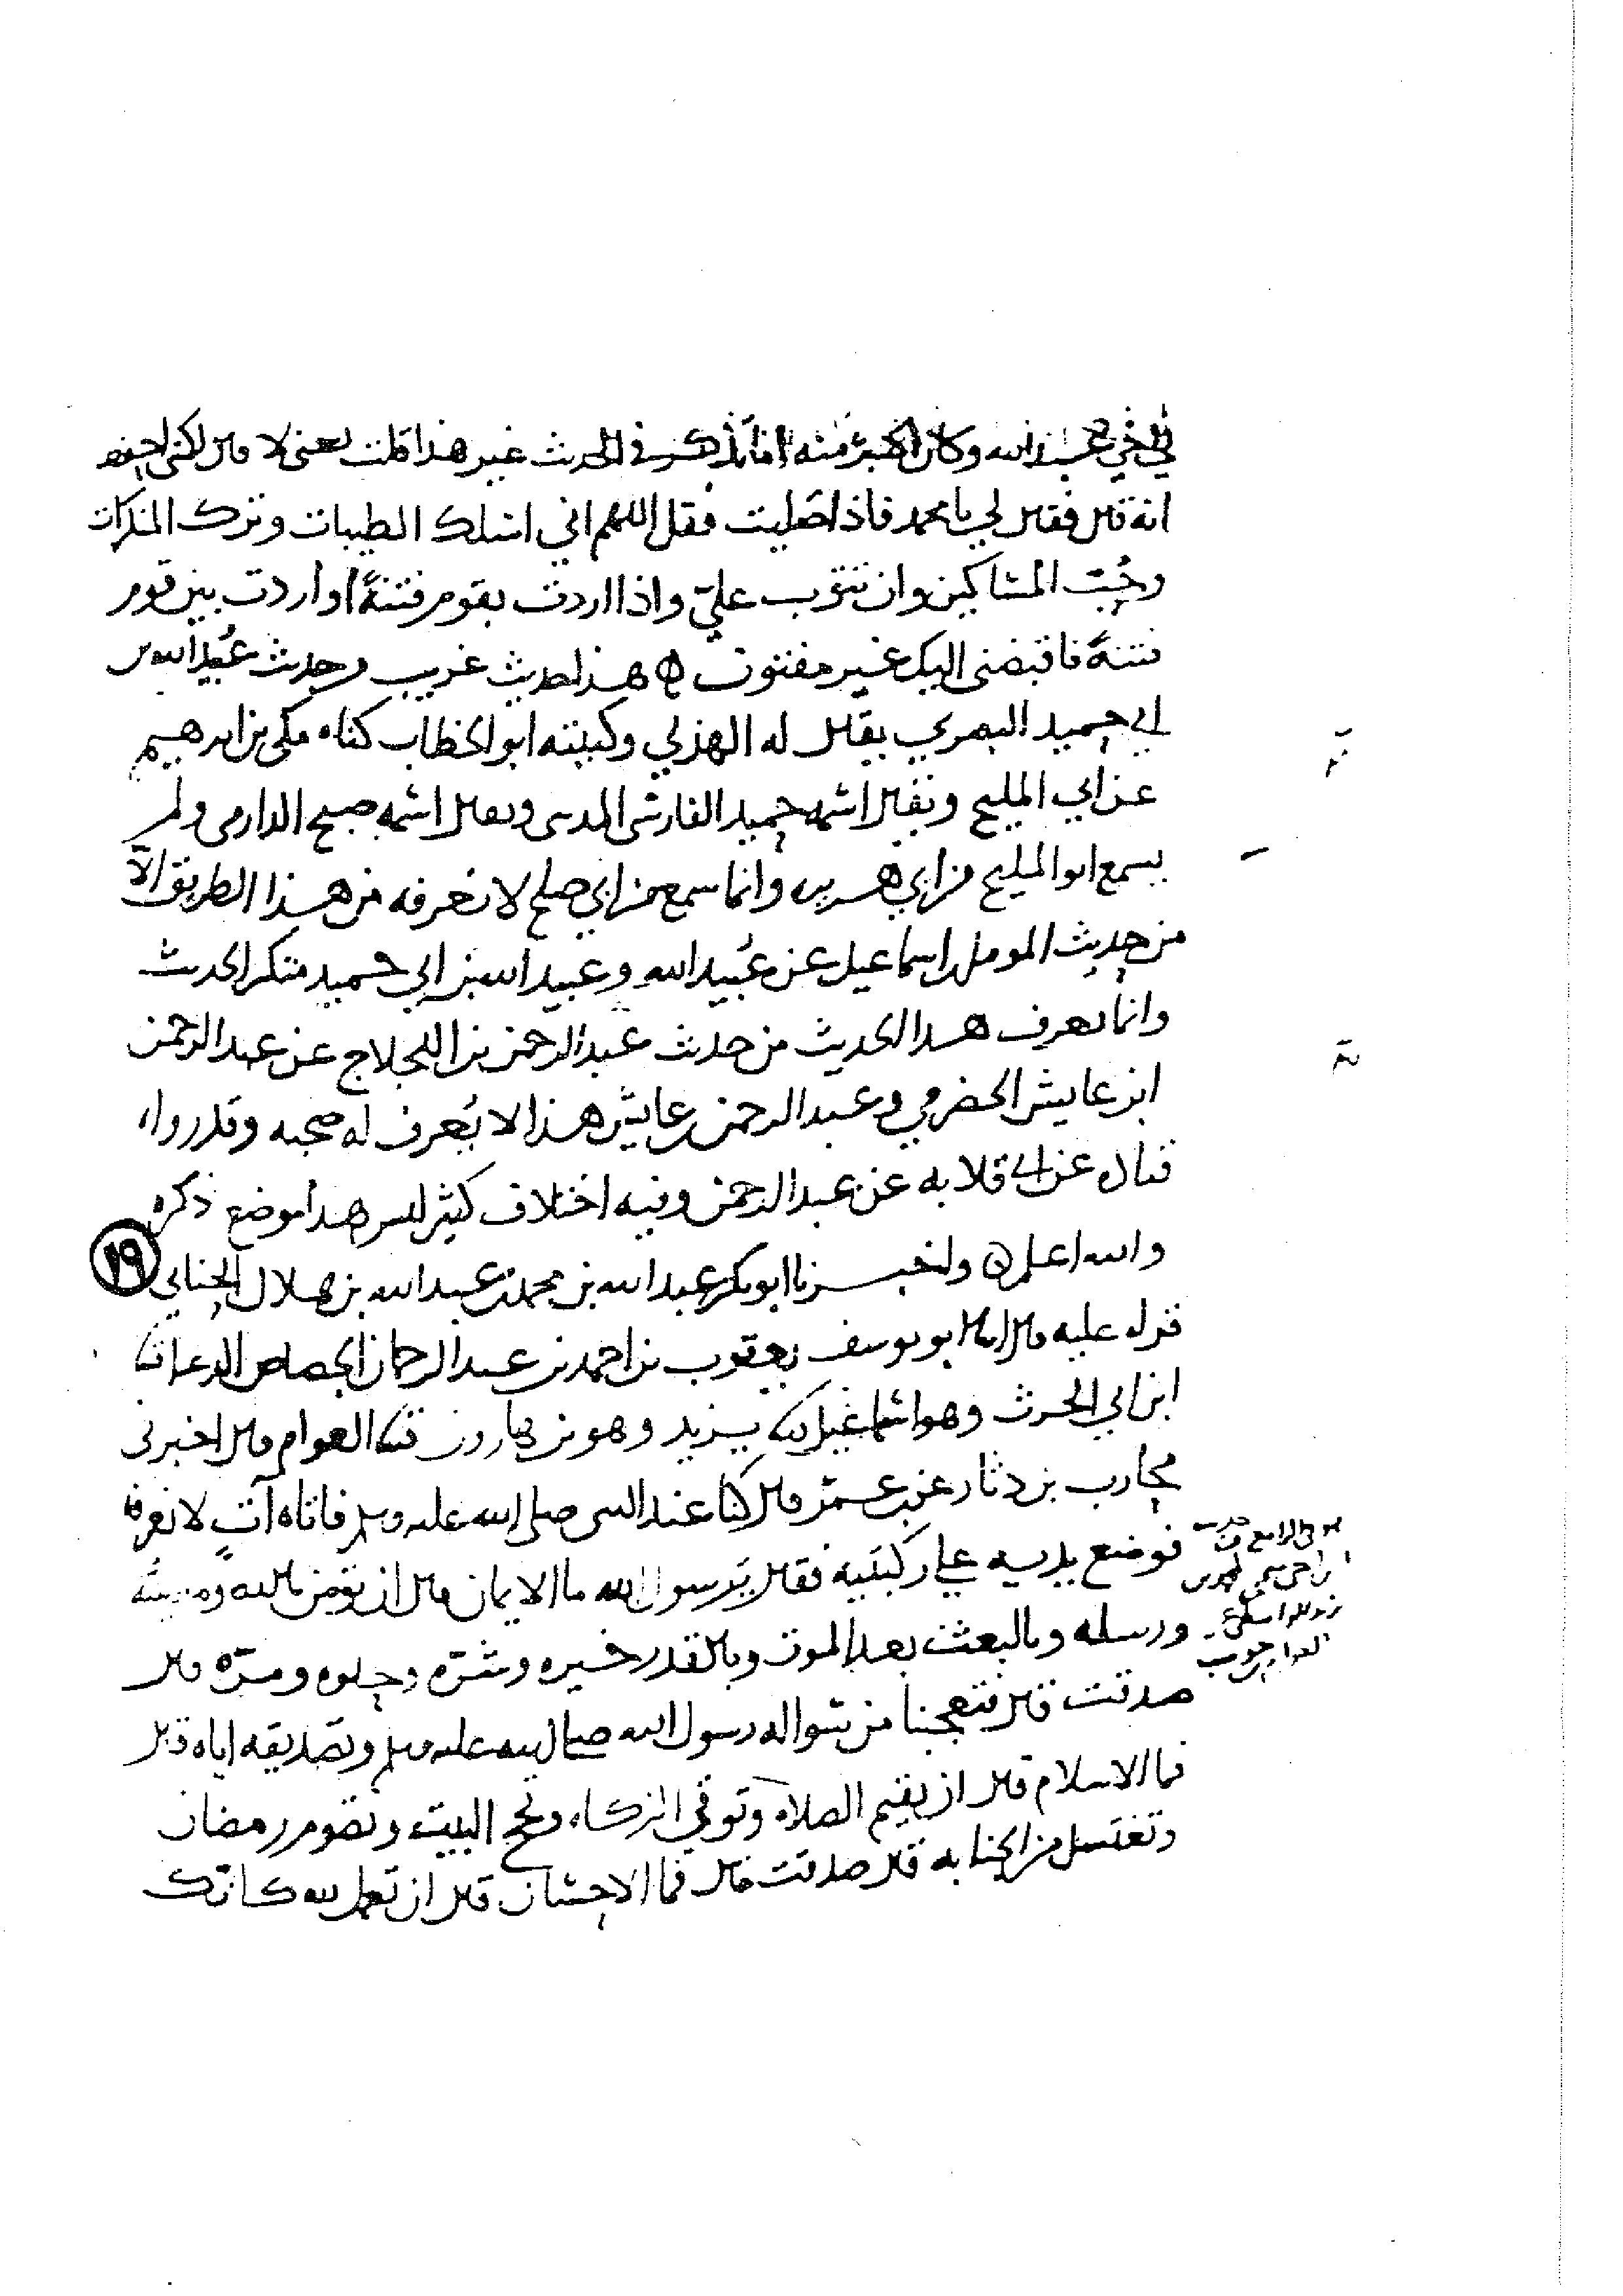 لي اخي عبيد الله وكان اكبر منه اما تذكر في الحديث غير هذا قلت يعني لا قال لكني احفظ
انه قال فقال لي يا محمد فاذا صليت فقل اللهم اني اسلك الطيبات وترك المنكرات
وحُبّ المساكين وان تتوب عليّ واذا اردت بقوم فتنةً او اردت بين قوم
فتنةً فاقبضني اليك غير مفتون ه هذا حديث غريب وحديث عُبيد الله بن
ابي حميد البصري يقال له الهذلي وكنيته ابو الخطاب كناه مكي بن ابرهيم
عن ابي المليح ويقال اسمه حميد الفارسي المدني ويقال اسمه صبيح الدارمي ولم
يسمع ابو المليح من ابي هريره وانما سمع من ابي صلح لا نعرفه من هذا الطريق الاّ
من حديث المومل بن اسماعيل عن عُبيد الله وعبيد الله بن ابي حميد منكر الحديث
وانما يعرف هذا الحديث من حديث عبد الرحمن بن اللجلاج عن عبد الرحمن
ابن عايش الحضرمي وعبد الرحمن بن عايش هذا لا يُعرف له صحبه وقد رواه
قتاده عن ابي قلابه عن عبد الرحمن وفيه اختلاف كثير ليس هذا موضع ذكره
والله اعلم ه واخبرنا ابو بكر عبد الله بن محمد بن عبد الله بن هلال الحنائي ١٩
قراه عليه قال انا ابو يوسف يعقوب بن احمد بن عبد الرحمان الجصاص الدعا ثنا
ابن ابي الحرث وهو اسماعيل ثنا يزيد وهو بن هارون ثنا العوام قال اخبرني
محارب بن دثار عن بن عمر قال كنا عند النبي صلى الله عليه وسلم فاتاه آتٍ لا نعرفه
فوضع يديه على ركبتيه فقال يرسول الله ما الايمان قال ان تؤمن بالله ومليكته
ورسله وبالبعث بعد الموت وبالقدر خيره وشره وحلوه ومرّه قال
صدقت قال فتعجبنا من سواله رسول الله صلى الله عليه وسلم وتصديقه اياه قال
فما الاسلام قال ان يقيم الصلاه وتوتي الزكاه وتحج البيت وتصوم رمضان
وتغتسل من الجنابه قال صدقت قال فما الاحسان قال ان تعمل لله كانك